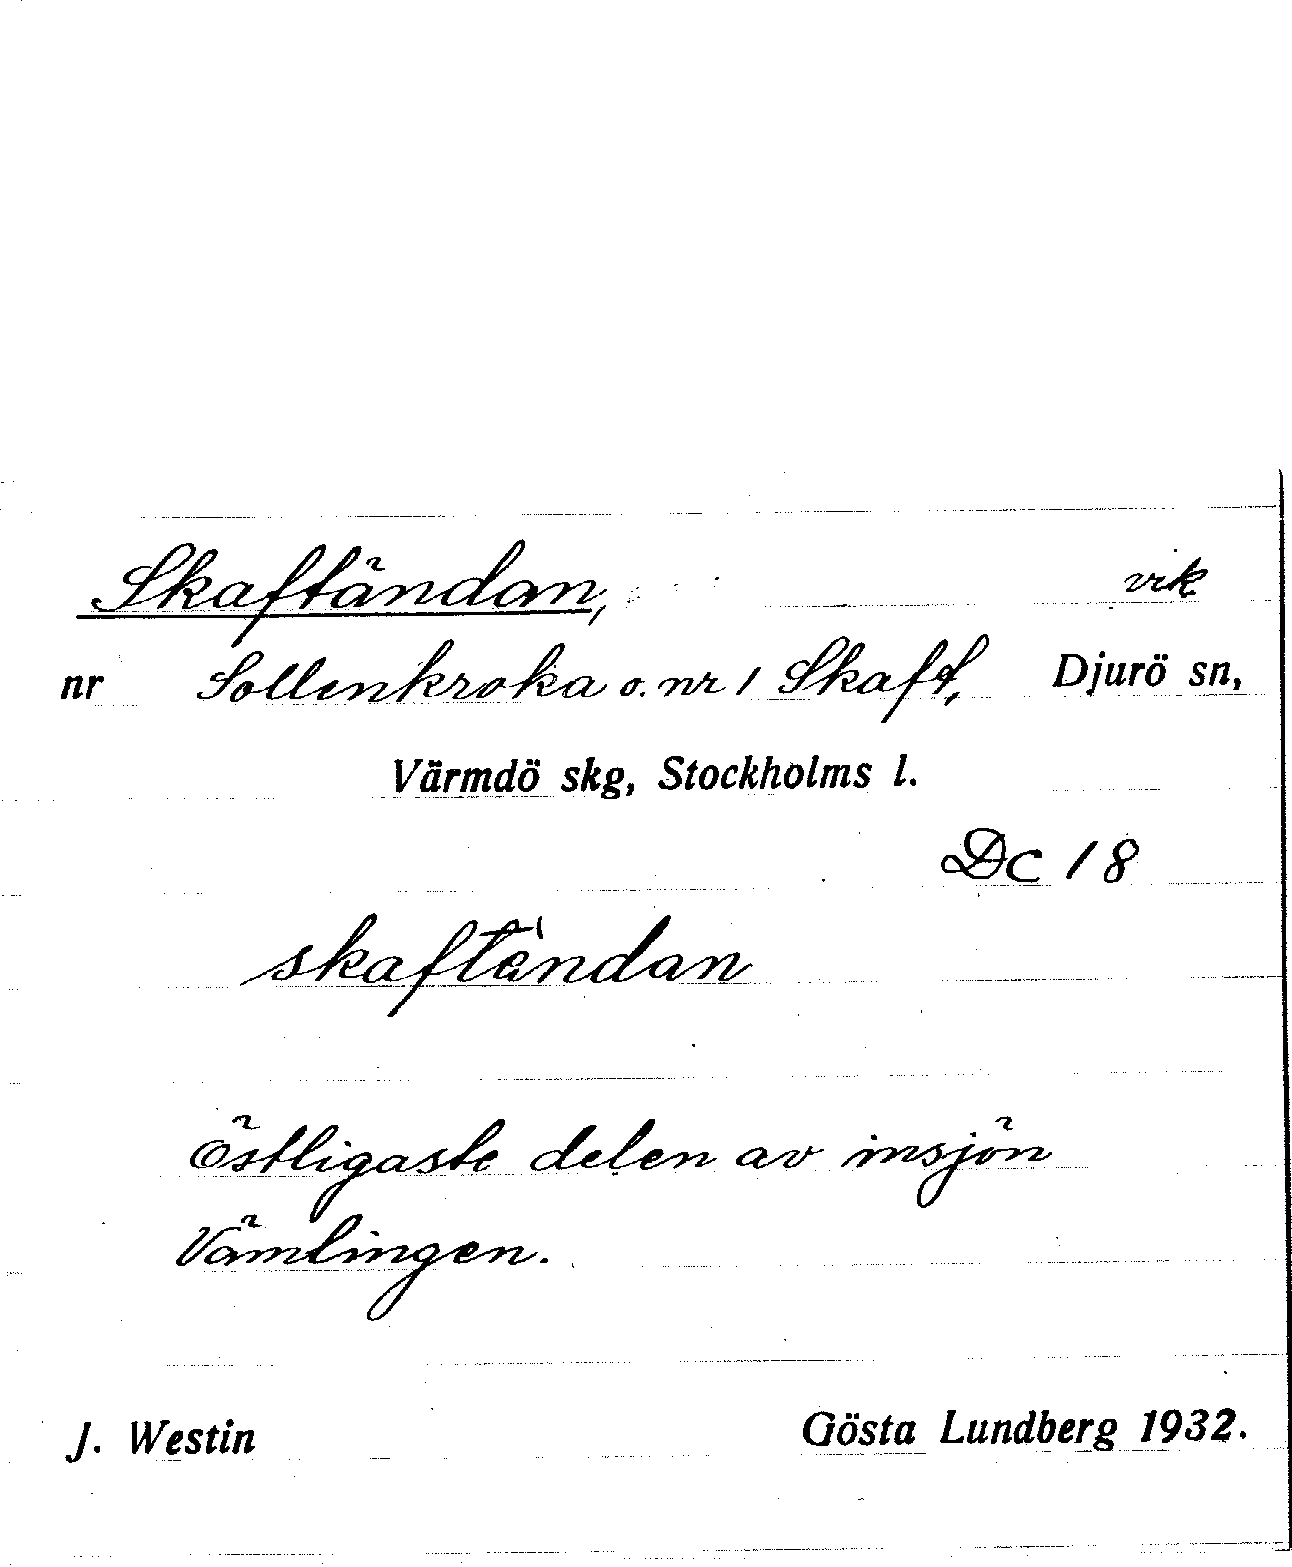 Skaftändan, vik
nr Sollenkroka o. nr 1 Skaft, Djurö sn,
Värmdö skg, Stockholms l.
Dc 18
skaftèndan
Östligaste delen av insjön
Vämlingen.
J. Westin Gösta Lundberg 1932.